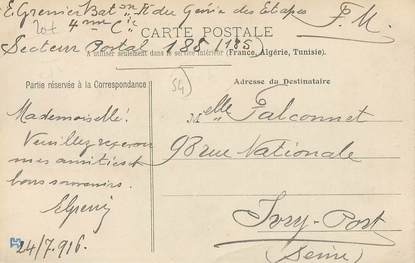 E. Grenier Bat on du Génie des Etapes F.M.
4ème Cie
CARTE POSTALE
Secteur Postal 185 (185)
A utiliser seulement dans le service intérieur (France, Algérie, Tunisie).
Partie réservée à la Correspondance
Adresse du Destinataire
54
Mademoiselle!
Veuillez recevoir
mes amitiés et
bons souvenirs.
EGrenier
24/7. 916.
Melle Falconnet
98 rue Nationale
Ivry-Port
(Seine)